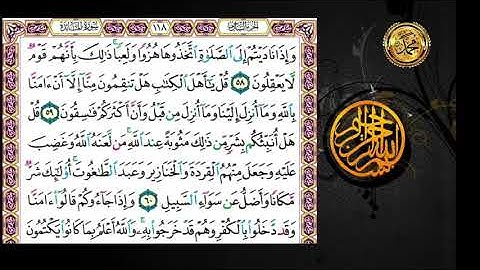 سورة المائدة ١١٨ الجزء السادس
وَإِذَا نَادَيْتُمْ إِلَى الصَّلَوٰةِ اتَّخَذُوهَا هُزُوًا وَلَعِبًا ذَٰلِكَ بِأَنَّهُمْ قَوْمٌ
لَّا يَعْقِلُونَ ٥٨ قُلْ يَٰٓأَهْلَ الْكِتَٰبِ هَلْ تَنقِمُونَ مِنَّآ إِلَّآ أَنْ ءَامَنَّا
بِاللَّهِ وَمَآ أُنزِلَ إِلَيْنَا وَمَآ أُنزِلَ مِن قَبْلُ وَأَنَّ أَكْثَرَكُمْ فَٰسِقُونَ ٥٩ قُلْ
هَلْ أُنَبِّئُكُم بِشَرٍّ مِّن ذَٰلِكَ مَثُوبَةً عِندَ اللَّهِ مَن لَّعَنَهُ اللَّهُ وَغَضِبَ
عَلَيْهِ وَجَعَلَ مِنْهُمُ الْقِرَدَةَ وَالْخَنَازِيرَ وَعَبَدَ الطَّٰغُوتَ أُو۟لَٰٓئِكَ شَرٌّ
مَّكَانًا وَأَضَلُّ عَن سَوَآءِ السَّبِيلِ ٦٠ وَإِذَا جَآءُوكُمْ قَالُوٓا۟ ءَامَنَّا
وَقَد دَّخَلُوا۟ بِالْكُفْرِ وَهُمْ قَدْ خَرَجُوا۟ بِهِ وَاللَّهُ أَعْلَمُ بِمَا كَانُوا۟ يَكْتُمُونَ
محمد
بسم الله الرحمن الرحيم